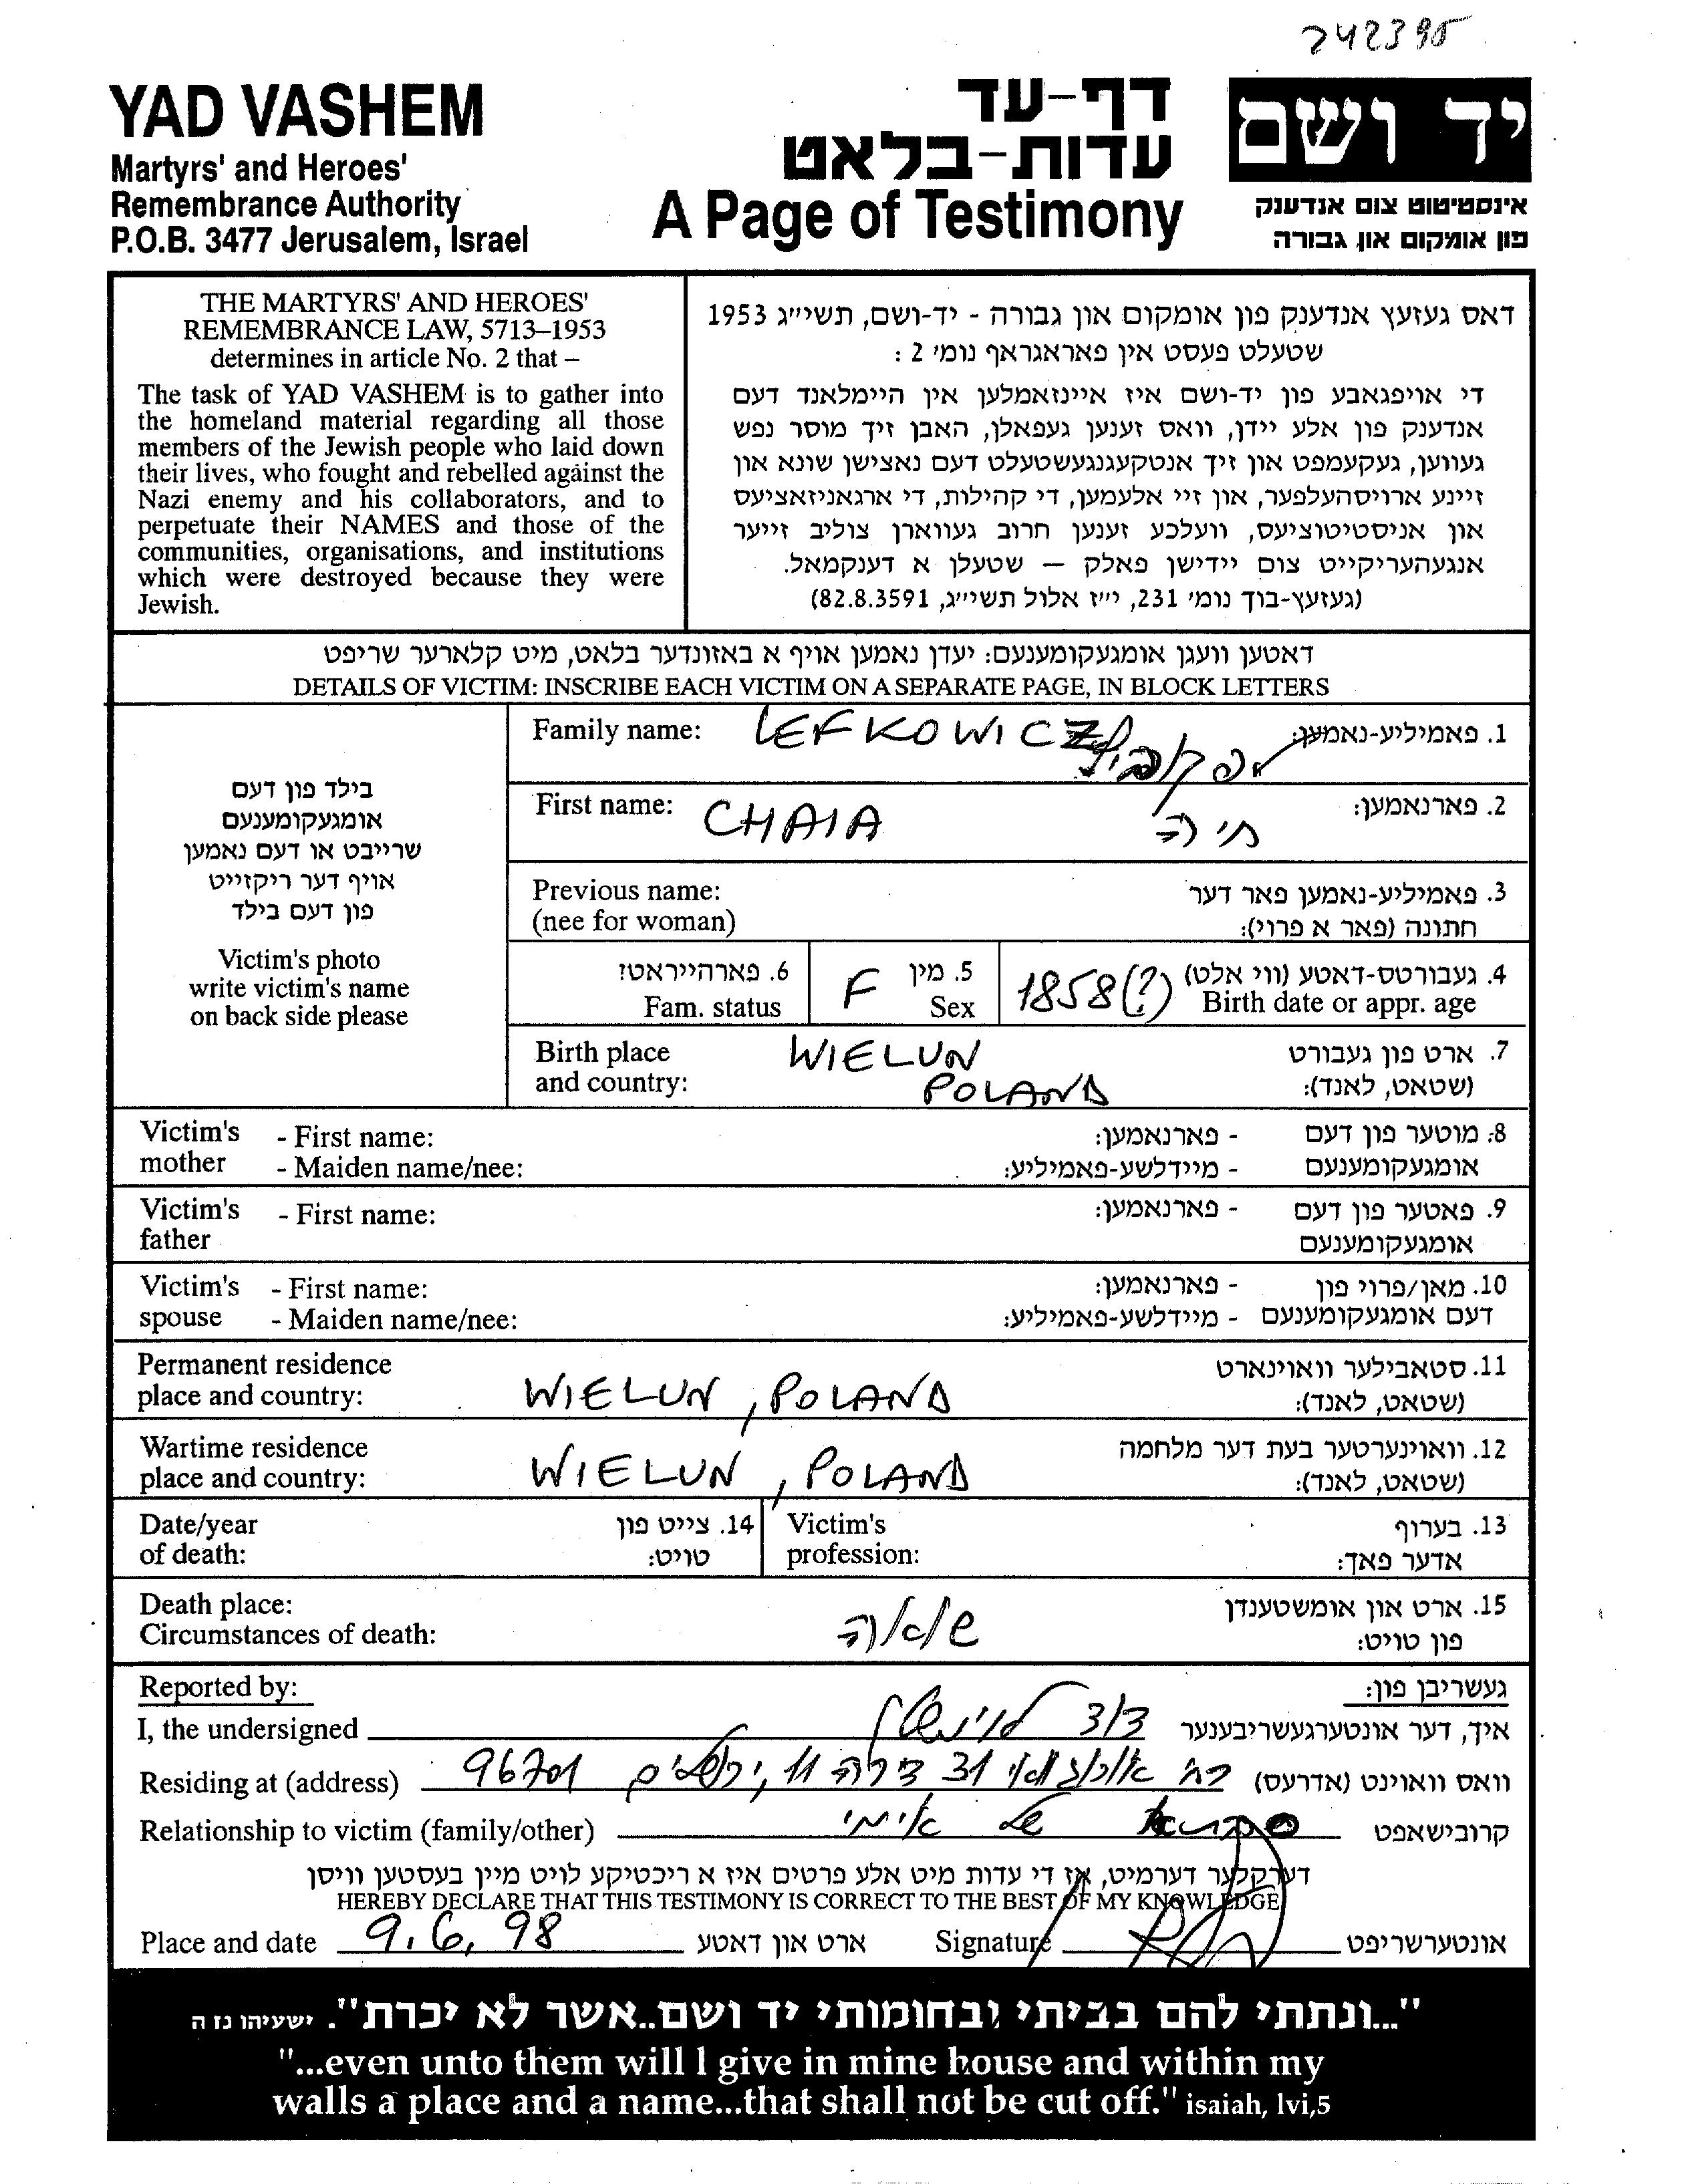 242395
YAD VASHEM
Martyrs' and Heroes'
Remembrance Authority
P.O.B. 3477 Jerusalem, Israel
דף-עד
עדות-בלאט
A Page of Testimony
יד ושם
אינסטיטוט צום אנדענק
פון אומקום און גבורה
THE MARTYRS' AND HEROES'
REMEMBRANCE LAW, 5713–1953
determines in article No. 2 that –
The task of YAD VASHEM is to gather into
the homeland material regarding all those
members of the Jewish people who laid down
their lives, who fought and rebelled against the
Nazi enemy and his collaborators, and to
perpetuate their NAMES and those of the
communities, organisations, and institutions
which were destroyed because they were
Jewish.
דאס געזעץ אנדענק פון אומקום און גבורה - יד-ושם, תשי״ג 1953
שטעלט פעסט אין פאראגראף נומ׳ 2 :
די אויפגאבע פון יד-ושם איז איינזאמלען אין היימלאנד דעם
אנדענק פון אלע יידן, וואס זענען געפאלן, האבן זיך מוסר נפש
געווען, געקעמפט און זיך אנטקעגנגעשטעלט דעם נאצישן שונא און
זיינע ארויסהעלפער, און זיי אלעמען, די קהילות, די ארגאניזאציעס
און אניסטיטוציעס, וועלכע זענען חרוב געווארן צוליב זייער
אנגעהעריקייט צום יידישן פאלק — שטעלן א דענקמאל.
(געזעץ-בוך נומ׳ 231, י״ז אלול תשי״ג, 82.8.3591)
דאטען וועגן אומגעקומענעם: יעדן נאמען אויף א באזונדער בלאט, מיט קלארער שריפט
DETAILS OF VICTIM: INSCRIBE EACH VICTIM ON A SEPARATE PAGE, IN BLOCK LETTERS
בילד פון דעם
אומגעקומענעם
שרייבט או דעם נאמען
אויף דער ריקזייט
פון דעם בילד
Victim's photo
write victim's name
on back side please
Family name: LEFKOWICZ לפקוביץ 1. פאמיליע-נאמען:
First name: CHAIA חיה 2. פארנאמען:
Previous name: 3. פאמיליע-נאמען פאר דער
(nee for woman) חתונה (פאר א פרוי):
6. פארהייראטט? F 5. מין 1858(?) 4. געבורטס-דאטע (ווי אלט)
Fam. status Sex Birth date or appr. age
Birth place WIELUN 7. ארט פון געבורט
and country: POLAND (שטאט, לאנד):
Victim's - First name: - פארנאמען: 8. מוטער פון דעם
mother - Maiden name/nee: - מיידלשע-פאמיליע: אומגעקומענעם
Victim's - First name: - פארנאמען: 9. פאטער פון דעם
father אומגעקומענעם
Victim's - First name: - פארנאמען: 10. מאן/פרוי פון
spouse - Maiden name/nee: - מיידלשע-פאמיליע: דעם אומגעקומענעם
Permanent residence 11. סטאבילער וואוינארט
place and country: WIELUN, POLAND (שטאט, לאנד):
Wartime residence 12. וואוינערטער בעת דער מלחמה
place and country: WIELUN, POLAND (שטאט, לאנד):
Date/year 14. צייט פון Victim's 13. בערוף
of death: טויט: profession: אדער פאך:
Death place: 15. ארט און אומשטענדן
Circumstances of death: שואה פון טויט:
Reported by: געשריבן פון:
I, the undersigned דוד איך, דער אונטערגעשריבענער
Residing at (address) 31 דירה 11, ירושלים 96701 וואס וואוינט (אדרעס)
Relationship to victim (family/other) סבתא של אימי קרובישאפט
דערקלער דערמיט, אז די עדות מיט אלע פרטים איז א ריכטיקע לויט מיין בעסטען וויסן
HEREBY DECLARE THAT THIS TESTIMONY IS CORRECT TO THE BEST OF MY KNOWLEDGE
Place and date 9.6.98 ארט און דאטע Signature אונטערשריפט
"...ונתתי להם בביתי ובחומותי יד ושם..אשר לא יכרת". ישעיהו נז ה
"...even unto them will I give in mine house and within my
walls a place and a name...that shall not be cut off." isaiah, lvi,5